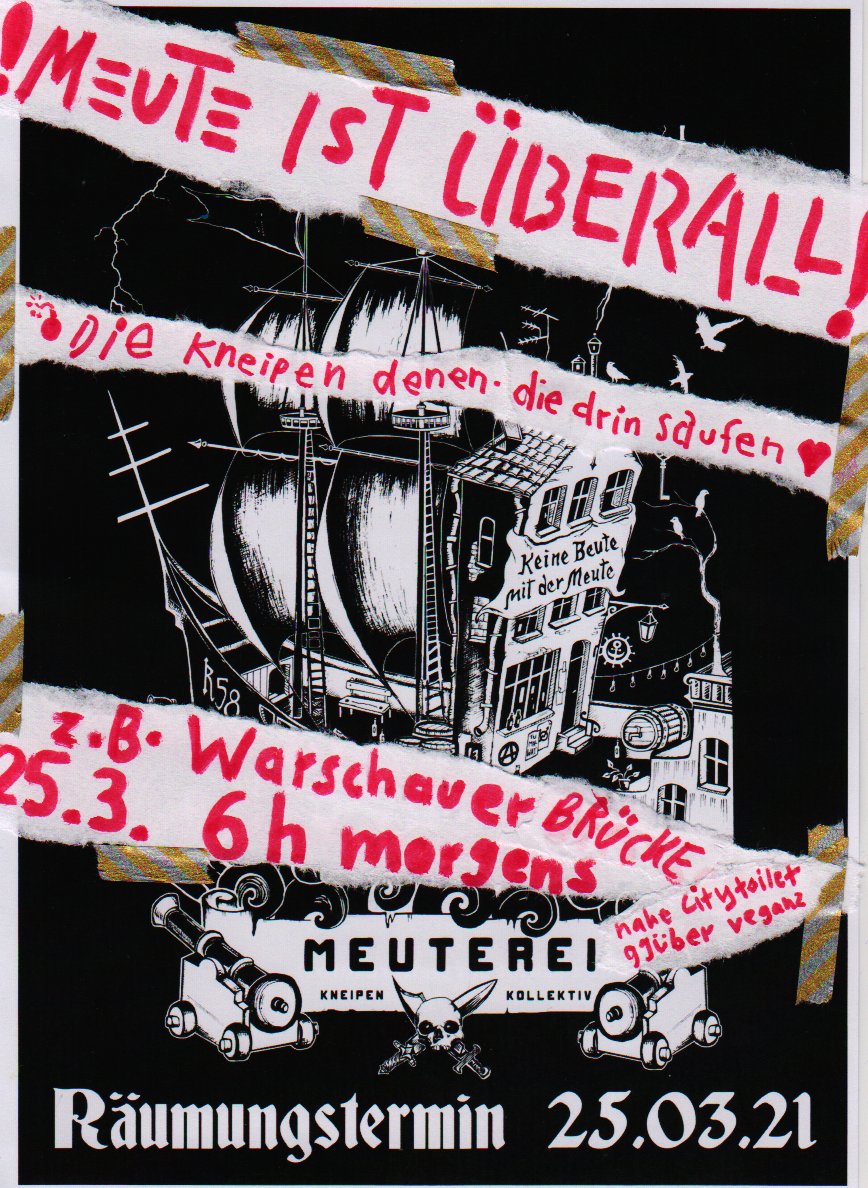 !MEUTE IST ÜBERALL!
Die Kneipen denen. die drin saufen
Keine Beute
mit der Meute
R58
z.B. Warschauer BRÜCKE
25.3. 6h morgens
nahe Citytoilet
ggüber veganz
MEUTEREI
KNEIPEN KOLLEKTIV
Räumungstermin 25.03.21